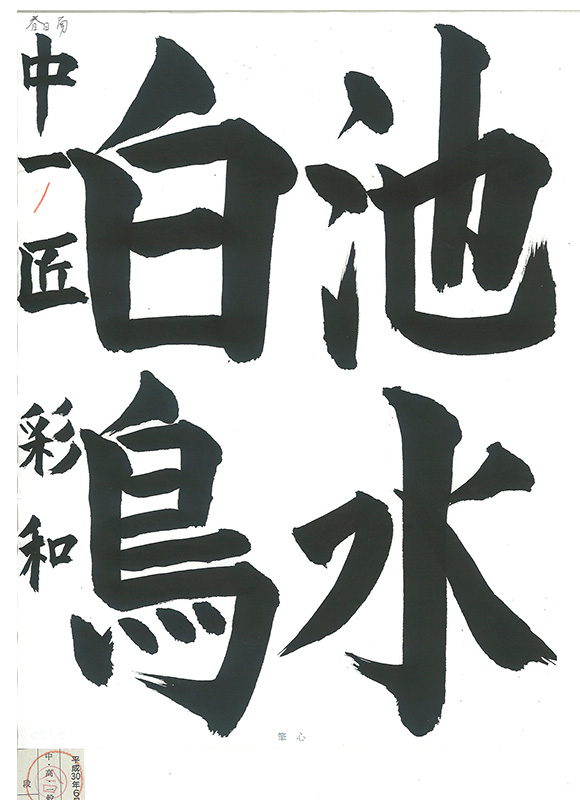 池水
白鳥
中一 匠 彩和
春日南
心筆
平成30年6
中・高・一般
段